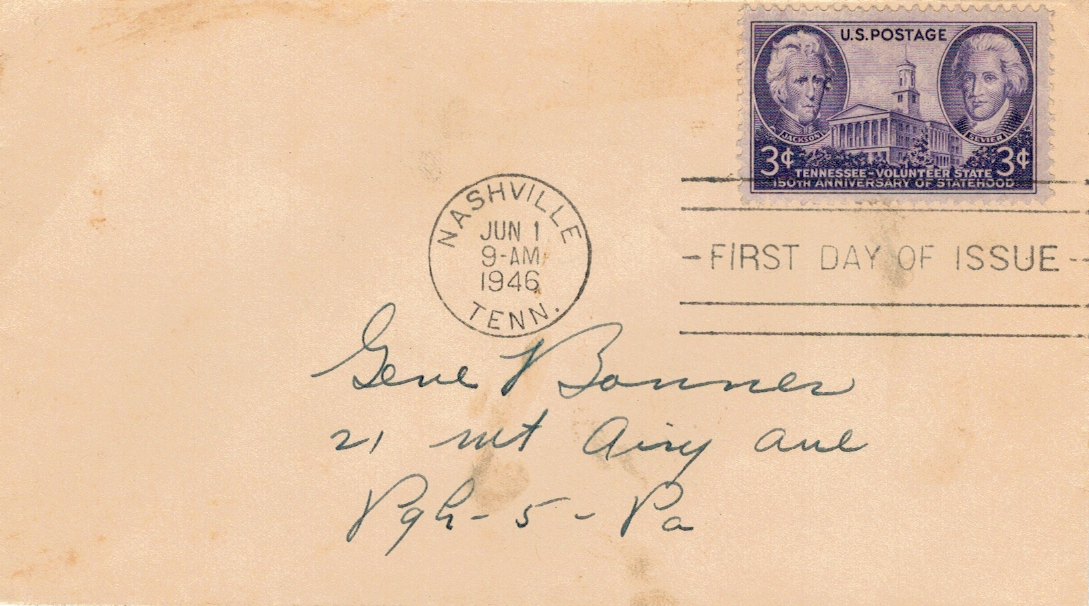 U.S.POSTAGE
JACKSON
SEVIER
3¢ 3¢
TENNESSEE-VOLUNTEER STATE
150TH ANNIVERSARY OF STATEHOOD
NASHVILLE
JUN 1
9-AM
1946
TENN.
FIRST DAY OF ISSUE
Gene V Bonner
21 Mt Airy Ave
Pgh-5-Pa